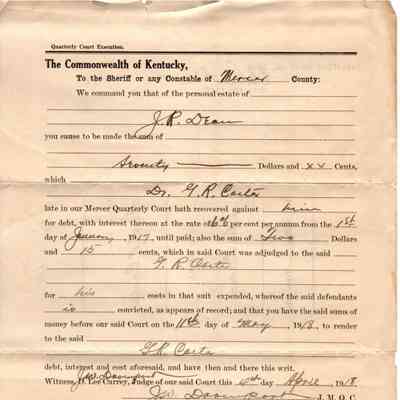 Quarterly Court Execution.
The Commonwealth of Kentucky,
To the Sheriff or any Constable of Mercer County:
We command you that of the personal estate of
J. R. Dean
you cause to be made the sum of
Seventy Dollars and xx Cents,
which
Dr. G. R. Carter
late in our Mercer Quarterly Court hath recovered against him
for debt, with interest thereon at the rate of 6% per cent per annum from the 1st
day of January, 1917, until paid; also the sum of Two Dollars
and 15 cents, which in said Court was adjudged to the said
G. R. Carter
for his costs in that suit expended, whereof the said defendants
is convicted, as appears of record; and that you have the said sums of
money before our said Court on the 11th day of May, 1918, to render
to the said
G. R. Carter
debt, interest and cost aforesaid, and have then and there this writ.
J.W. Davenport
Witness, D. Lee Currey, Judge of our said Court this day April, 1918.
J.W. Davenport J. M. Q. C.